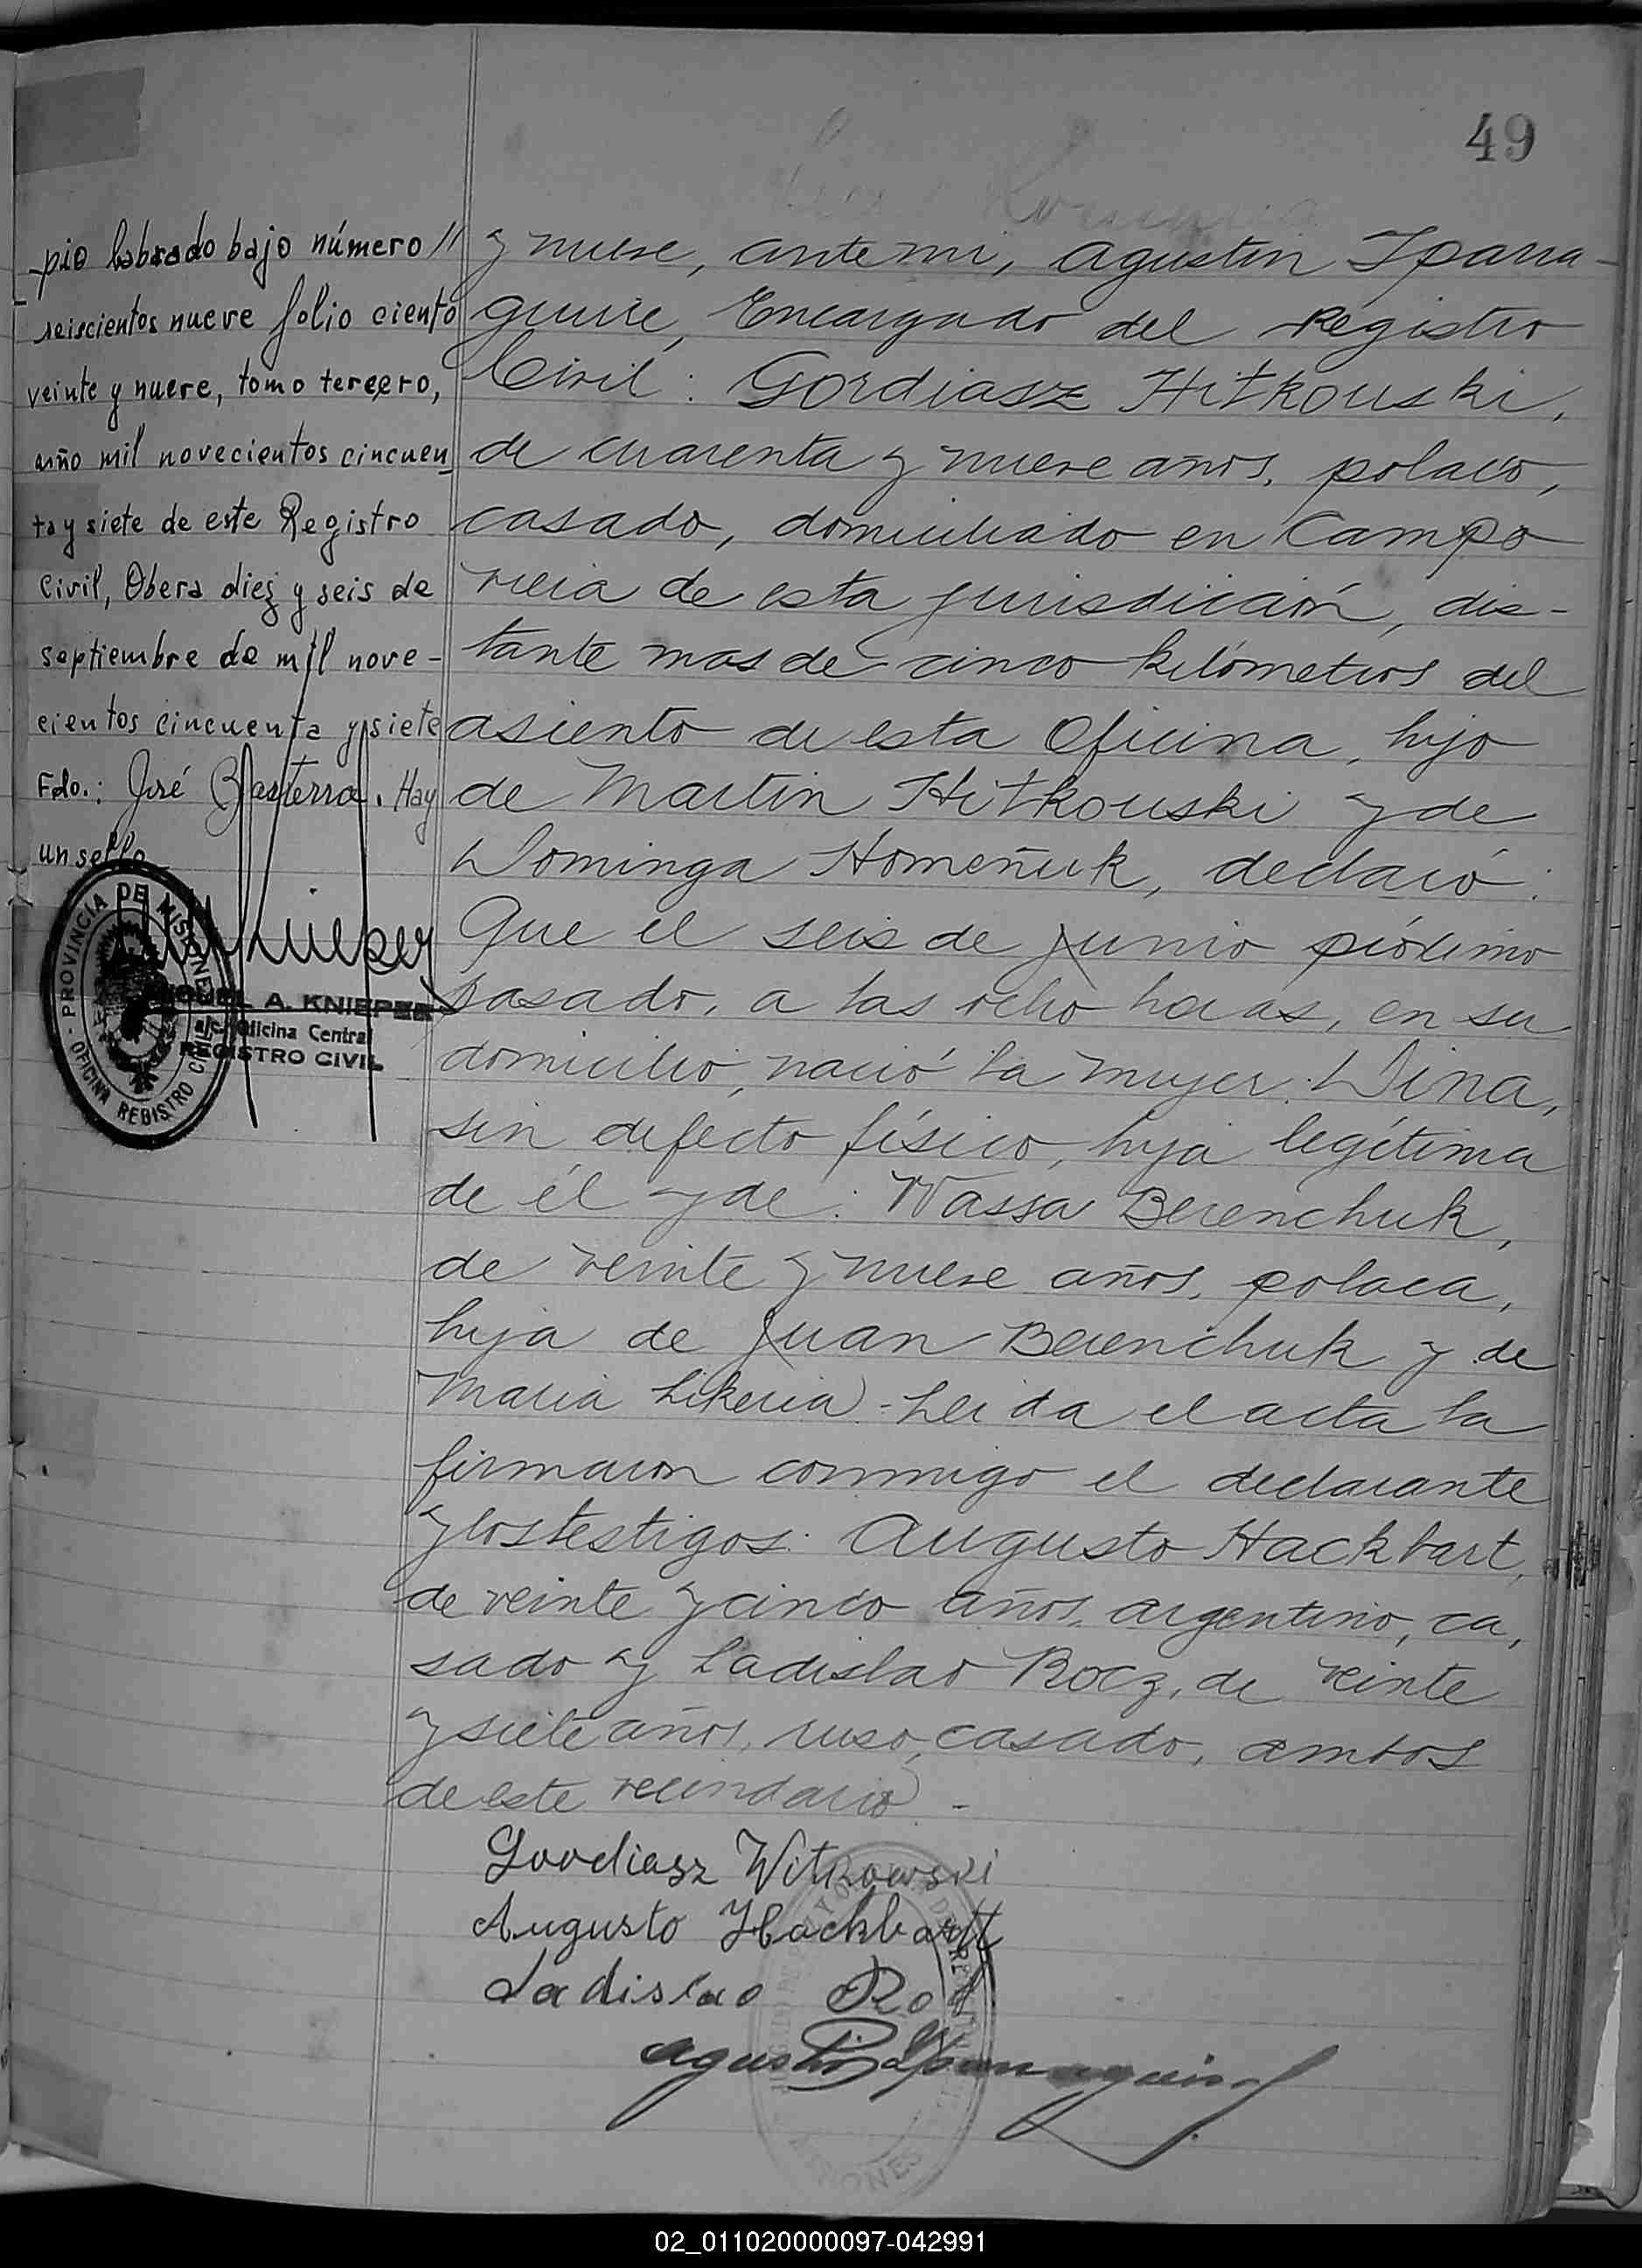 49
pio labrado bajo número //
seiscientos nueve folio ciento
veinte y nueve, tomo tercero,
año mil novecientos cincuen_
ta y siete de este Registro
Civil, Obera diez y seis de
septiembre de mil nove-
cientos cincuenta y siete
Fdo.: José Basterra. Hay
un sello
PROVINCIA DE MISIONES
OFICINA REGISTRO CIVIL
A. KNIEPER
a/c. Oficina Central
REGISTRO CIVIL
y nueve, ante mi, Agustin Iparra-
guirre, Encargado del Registro
Civil: Gordiasz Hitkouski,
de cuarenta y nueve años, polaco,
casado, domiciliado en Campo
vieia de esta jurisdicción, dis-
tante mas de cinco kilómetros del
asiento de esta Oficina, hijo
de Martin Hitkouski y de
Dominga Homeñuk, declaró:
Que el seis de junio próximo
pasado, a las ocho horas, en su
domicilio, nació la mujer: Dina,
sin defecto físico, hija legítima
de él y de: Wassa Berenchuk,
de veinte y nueve años, polaca,
hija de Juan Berenchuk y de
Maria Likeria - Leida el acta la
firmaron conmigo el declarante
y los testigos: Augusto Hackbart,
de veinte y cinco años, argentino, ca,
sado y Ladislao Rocz, de veinte
y siete años, ruso, casado, ambos
de este vecindario -
Gordiasz Witkowski
Augusto Hackbartt
Ladislao
Agustin Iparraguirre
MISIONES
02_011020000097-042991